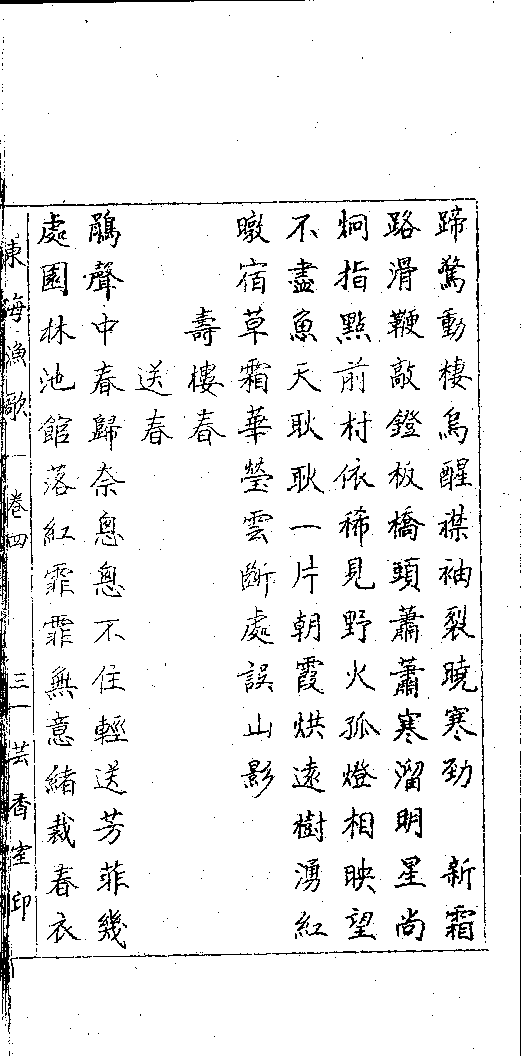 蹄驚動棲烏醒襟袖裂曉寒勁　新霜
路滑鞭敲鐙板橋頭蕭蕭寒溜明星尚
炯指點前村依稀見野火孤燈相映望
不盡魚天耿耿一片朝霞烘遠樹湧紅
暾宿草霜華瑩雲斷處誤山影
壽樓春
送春
鵑聲中春歸奈悤悤不住輕送芳菲幾
處園林池館落紅霏霏無意緒裁春衣
東海漁歌　卷四　三一　芸香室印